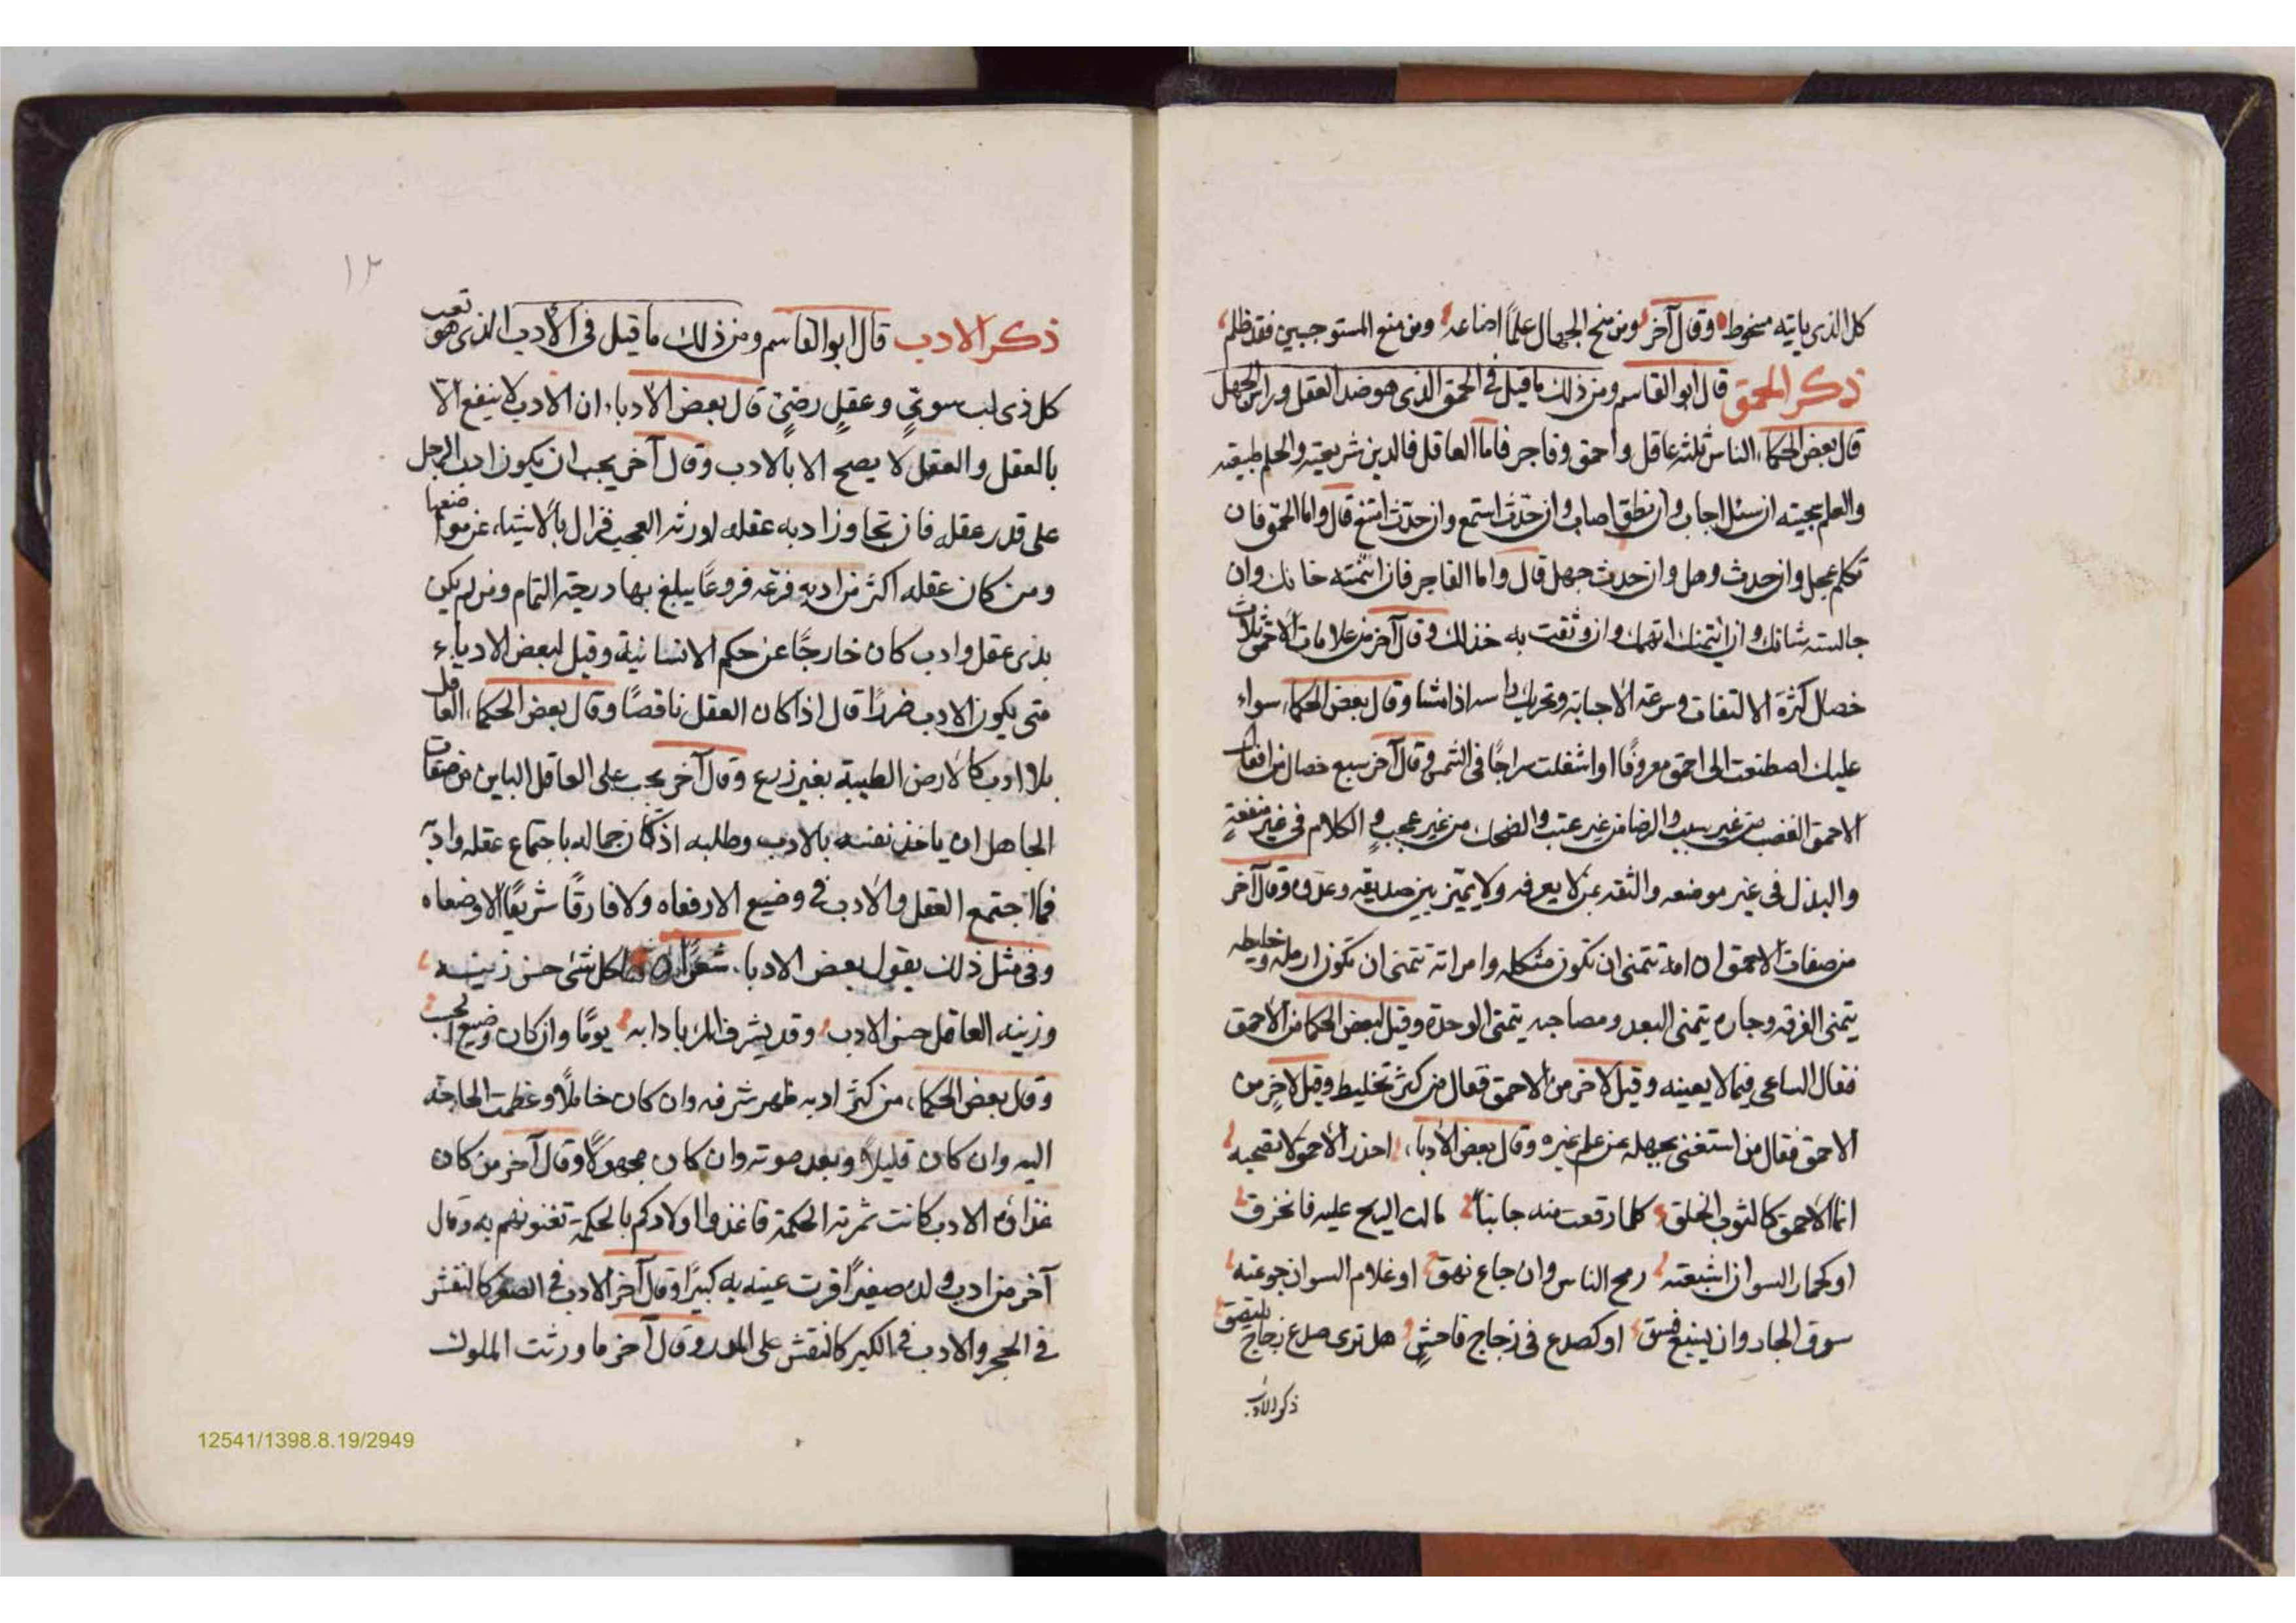 كل الذى ياتيه سخوط وقال آخر ومن منح الجهال علماً اضاعه ومن منع المستوجبين فقد ظلم
ذكر الحمق قال ابو القاسم ومن ذلك ما قيل فى الحمق الذى هو ضد العقل وراس الجهل
قال بعض الحكماء الناس ثلثه عاقل واحمق وفاجر فاما العاقل فالدين شريعته والحلم طبيعته
والعلم سجيته ان سئل اجاب وان نطق اصاب وان حدّث استمع وان حدّث قال واما الحمق فان
تكلم عجل وان حدث وهل وان حدث جهل قال واما الفاجر فان ائتمنته خانك وان
جالسته شانك وان ائتمنك اتهمك وان وثقت به خذلك وقال آخر من علامات الاحمق ثلاث
خصال كثرة الالتفات وسرعة الاجابة وتحريك راسه اذا مشا وقال بعض الحكماء سواء
عليك اصطنعت الى احمق معروفاً او اشغلت سراجاً فى الشمس وقال آخر سبع خصال من افعال
الاحمق الغضب من غير سبب والرضا من غير عتب والضحك من غير عجب و الكلام فى غير منفعةٍ
والبذل فى غير موضعه والثقه بمن لا يعرفه ولا يميّز بين صديقه وعدوه وقال آخر
من صفات الاحمق ان امه تتمنى ان تكون مثكله وامراته تتمنى ان تكون ارمله وخليطه
يتمنى الفرقه وجاره يتمنى البعد ومصاحبه يتمنى الوحدة وقيل لبعض الحكما من الاحمق
فقال الساعى فيما لا يعينه وقيل لآخر من الاحمق فقال من كثر تخليط وقيل لآخر من
الاحمق فقال من استغنى بجهله عن علم غيره وقال بعض الادباء احذر الاحمق لا تصحبه
انما الاحمق كالثوب الخلق كلما رقعت منه جانباً مالت الريح عليه فانخرق
او كحمار السوا ان اشبعته رمح الناس وان جاع نهق او غلام السوا ان جوعته
سوق الجار وان يشبع فسق او كصدع فى زجاج فاحشٍ هل ترى صدع زجاج يلتصق
ذكر الادب
١٢
ذكر الادب قال ابو القاسم ومن ذلك ما قيل فى الادب الذى هو تعب
كل ذى لب سوىّ وعقل رضىّ قال بعض الادباء ان الادب لا ينفع الا
بالعقل والعقل لا يصح الا بالادب وقال آخر يجب ان يكون ادب الرجل
على قدر عقله فان تجاوز ادبه عقله اورثه العجب فزال بالاشياء عن مواضعها
ومن كان عقله اكثر من ادبه فرّعه فروعاً يبلغ بها درجة التمام ومن لم يكن
بذى عقل وادب كان خارجاً عن حكم الانسانية وقيل لبعض الادباء
متى يكون الادب ضرراً قال اذا كان العقل ناقصاً وقال بعض الحكماء العاقل
بلا ادب كالارض الطيبة بغير زرع وقال آخر يجب على العاقل الباين من صفات
الجاهل ان ياخذ نفسه بالادب وطلبه اذ كان جماله باجتماع عقله وادبه
فما اجتمع العقل والادب فى وضيع الا رفعاه ولا فارقا شريفاً الا وضعاه
وفى مثل ذلك يقول بعض الادباء شعراً لكل شئ حسن زينه
وزينه العاقل حسن الادب وقد يشرف المر بادابه يومًا وان كان وضيع الحسب
وقال بعض الحكماء من كثر ادبه ظهر شرفه وان كان خاملاً وعظمت الحاجة
اليه وان كان قليلاً وبعد صوته وان كان مجهولاً وقال آخر من كان
غذاؤه الادب كانت ثمرته الحكمة فاغذوا اولادكم بالحكمة تغنونهم به وقال
آخر من ادب ولده صغيراً اقرت عينه به كبيراً وقال آخر الادب فى الصغر كالنقش
فى الحجر والادب فى الكبر كالنقش على المدر وقال آخر ما ورثت الملوك
12541/1398.8.19/2949